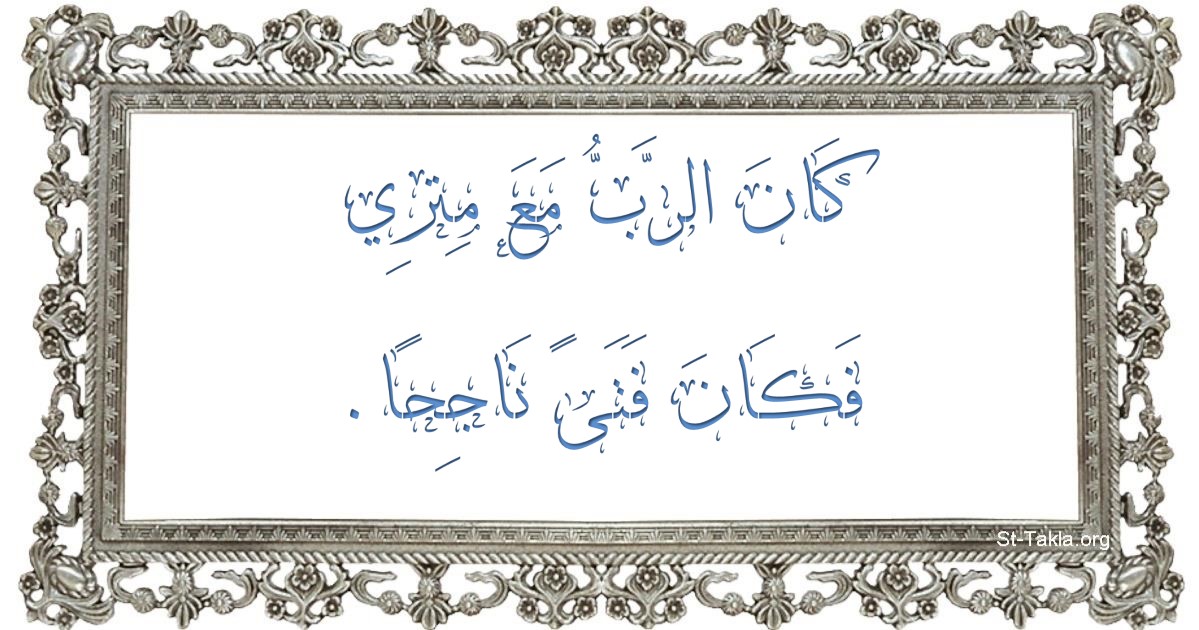 كَانَ الرَّبُّ مَعَ مِتزِي
فَكَانَ فَتَىً نَاجِحًا.
St-Takla.org